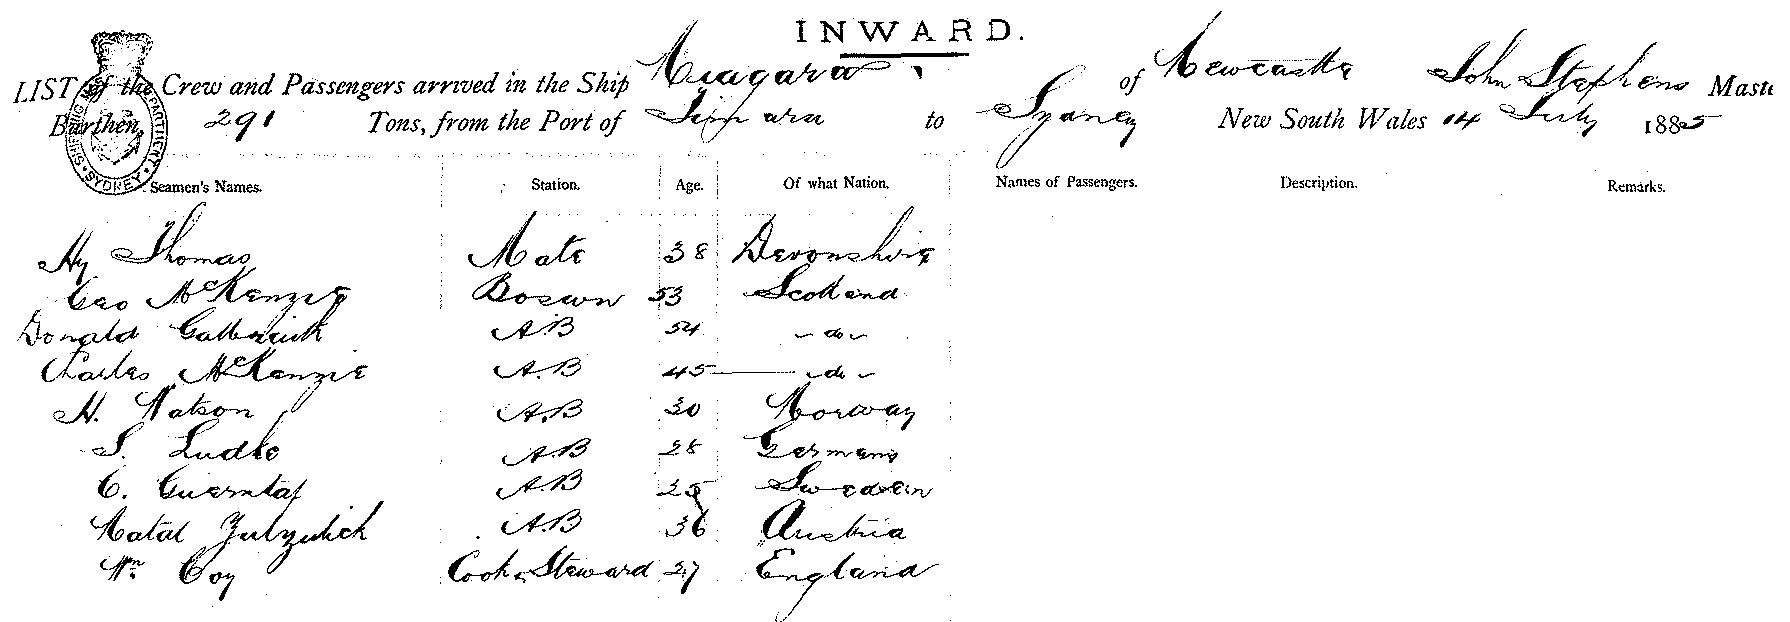 INWARD.
LIST of the Crew and Passengers arrived in the Ship Niagara of Newcastle John Stephens Maste
Burthen, 291 Tons, from the Port of Timaru to Sydney New South Wales 14 July 1885
SHIPPING DEPARTMENT SYDNEY
Seamen's Names. Station. Age. Of what Nation. Names of Passengers. Description. Remarks.
Hy Thomas Mate 38 Devonshire
Geo McKenzie Boswn 53 Scotland
Donald Galbraith A.B 54 - do -
Charles McKenzie A.B 45 - do -
H. Watson A.B 30 Norway
S. Ludke A.B 28 Germany
C. A.B 25 Sweden
A.B 36 Austria
Wm Coy Cook & Steward 27 England